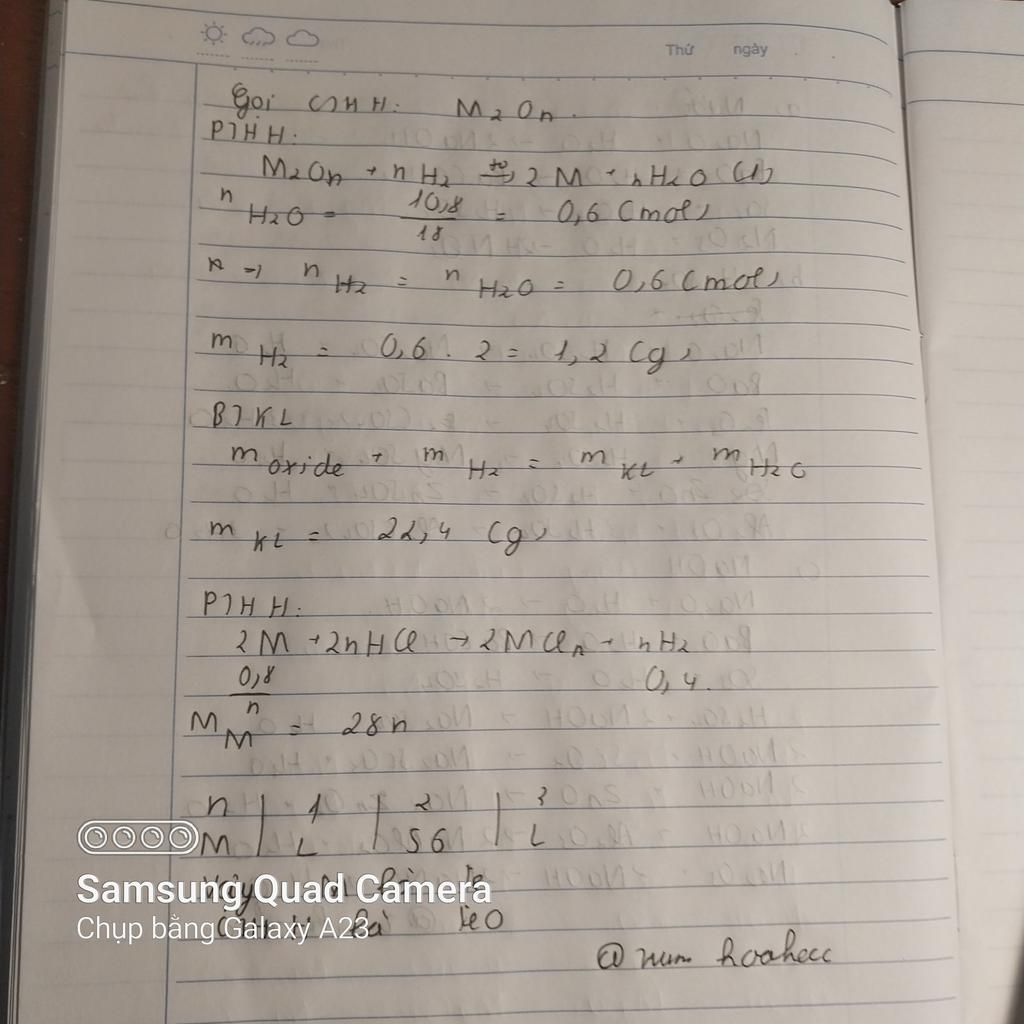 Thứ ngày
Gọi CTHH: M₂On.
PTHH:
M₂On + nH₂ →(t°) 2M + nH₂O (1)
nH₂O = 10,8/18 = 0,6 (mol)
=> nH₂ = nH₂O = 0,6 (mol)
mH₂ = 0,6 . 2 = 1,2 (g)
BTKL
m oxide + mH₂ = mKL + mH₂O
mKL = 22,4 (g)
PTHH:
2M + 2nHCl → 2MCln + nH₂
0,8/n 0,4.
MM = 28n
n | 1 | 2 | 3
M | L | 56 | L
Vậy M là Fe
CTHH là FeO
Samsung Quad Camera
Chụp bằng Galaxy A23
@num hoahocc